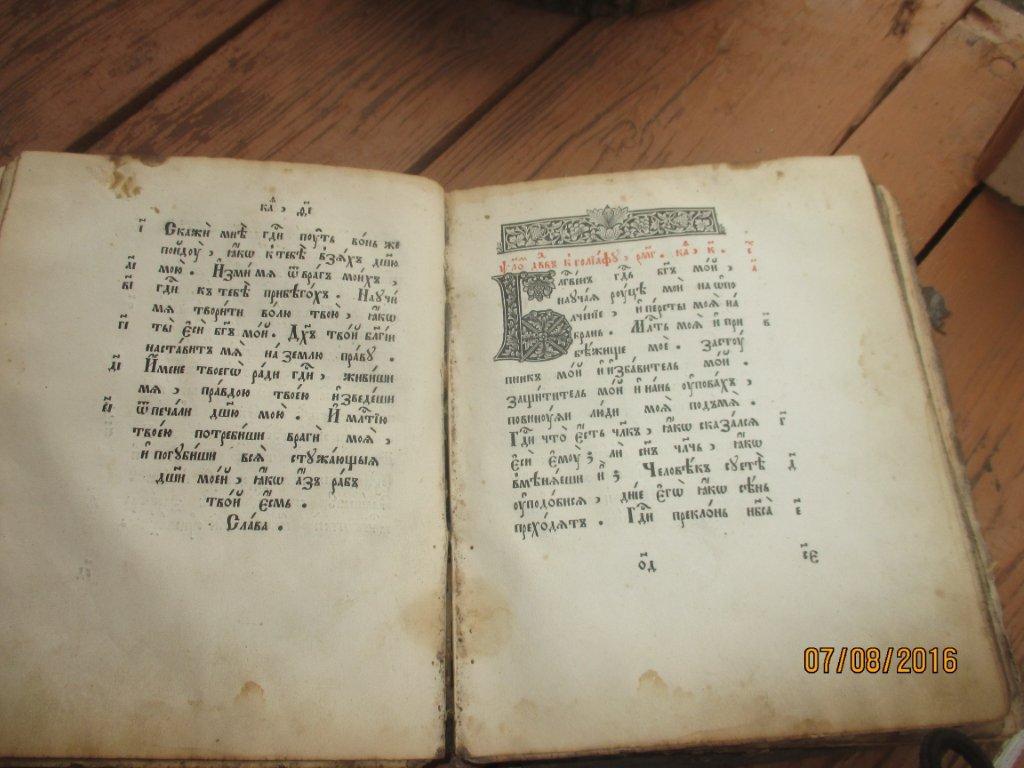 каѳ, ѳ҃і
і҃ Скажѝ мнѣ̀ гдⷭ҇и поуть во́ньже
пойдоу̀, ꙗ҆́кѡ к тебѣ̀ взѧ́хъ дш҃ꙋ
а҃і мою̀. И҆зми́ мѧ ѿ вра́гъ мои́хъ,
в҃і гдⷭ҇и къ тебѣ̀ прибѣго́хъ. Научи́
мѧ твори́ти во́лю твою̀, ꙗ҆́кѡ
г҃і ты̀ є҆сѝ бг҃ъ мо́й. Дх҃ъ тво́й бл҃гі́и
наста́витъ мѧ̀ на зе́млю пра́вꙋ.
д҃і И҆́мене твоегѡ̀ ра́ди гдⷭ҇и, живи́ши
мѧ, пра́вдою твое́ю и҆зведе́ши
є҃і ѿ печа́ли дш҃ꙋ мою̀. И҆ млⷭ҇тїю
твое́ю потреби́ши врагѝ моѧ̀,
и҆ погꙋби́ши всѧ стꙋжа́ющыѧ
дш҃и мое́й, ꙗ҆́кѡ а҆́зъ ра́бъ
тво́й є҆́смь.
Сла́ва.
ѱⷭ҇ло́м дв҃дъ к голїа́фꙋ, рм҃г. каѳ, к҃.
Блгⷭ҇ве́нъ гдⷭ҇ь бг҃ъ мо́й, а҃
науча́ѧ роуцѣ̀ моѝ на ѡ҆по
лче́нїе, и҆ пе́рсты моѧ̀ на́
бра́нь. Млⷭ҇ть моѧ̀ и҆ при в҃
бѣ́жище моѐ. Застоу́
пникъ мо́й и҆ и҆зба́витель мо́й.
Защи́титель мо́й и҆ на́нь оу҆пова́хъ,
повиноу́ѧи лю́ди моѧ̀ подъ мѧ̀.
Гдⷭ҇и что̀ є҆́сть чл҃къ, ꙗ҆́кѡ сказа́лсѧ г҃
є҆сѝ є҆моу̀; и҆лѝ сн҃ъ чл҃чь, ꙗ҆́кѡ
вмѣнѧ́еши и҆̀; Человѣ́къ суетѣ̀ д҃
оу҆подо́бисѧ, дні́е є҆гѡ̀ ꙗ҆́кѡ сѣ́нь
прехо́дѧтъ. Гдⷭ҇и преклонь нб҃са̀ є҃
о҃д
07/08/2016